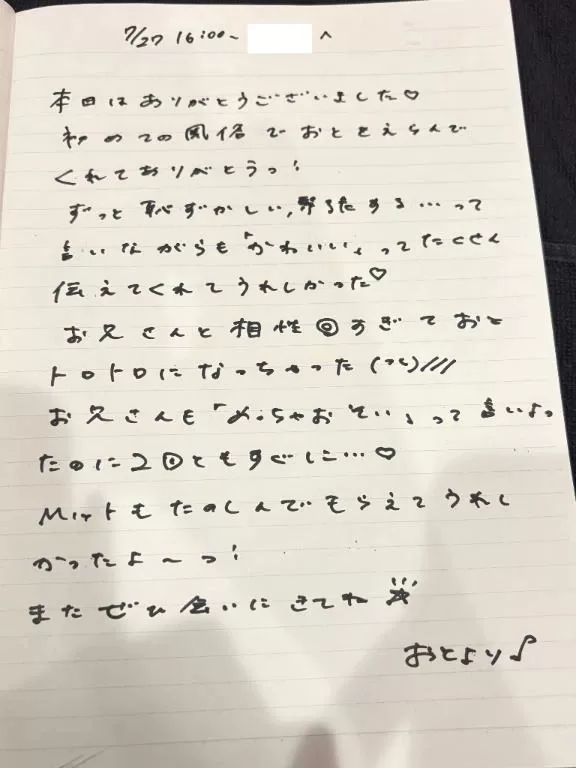 7/27 16:00~ へ
本日はありがとうございました♡
初めての風俗でおとをえらんで
くれてありがとうっ!
ずっと恥ずかしい,緊張する…って
言いながらも「かわいい」ってたくさん
伝えてくれてうれしかった♡
お兄さんと相性◎すぎておと
トロトロになっちゃった ///
お兄さんも「めっちゃおそい」って言いよっ
たのに2回ともすぐに…♡
Mットもたのしんでもらえてうれし
かったよ〜っ!
またぜひ会いにきてね☆
おとより♪